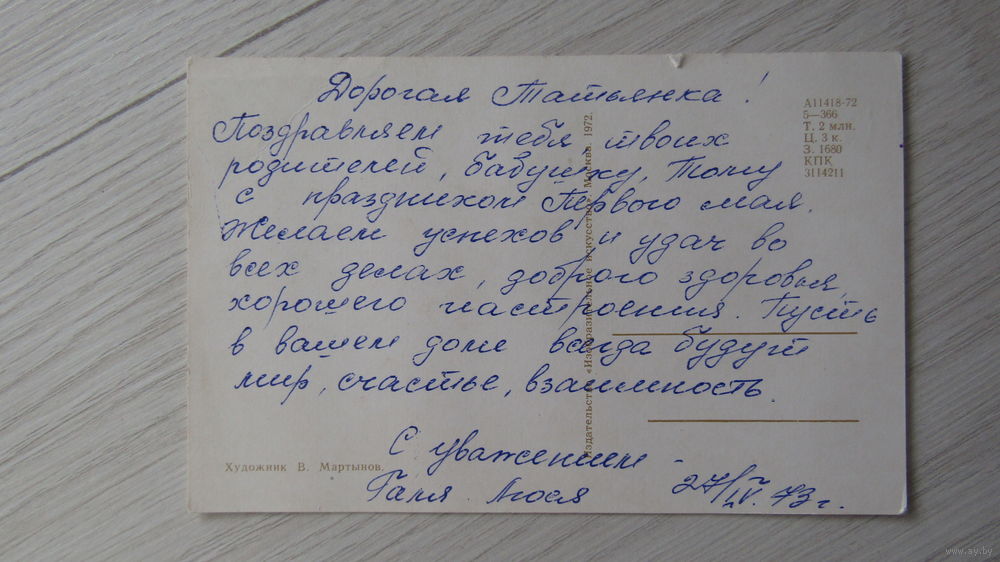 Дорогая Татьянка!
Поздравляем тебя, твоих
родителей, бабушку, Тому
с праздником Первого мая.
Желаем успехов и удач во
всех делах, доброго здоровья,
хорошего настроения. Пусть
в вашем доме всегда будут
мир, счастье, взаимность.
С уважением
Галя. Люся
27/IV. 73 г.
А11418-72
5—366
Т. 2 млн.
Ц. 3 к.
З. 1680
КПК
3114211
Издательство «Изобразительное искусство». Москва. 1972.
Художник В. Мартынов.
www.ay.by